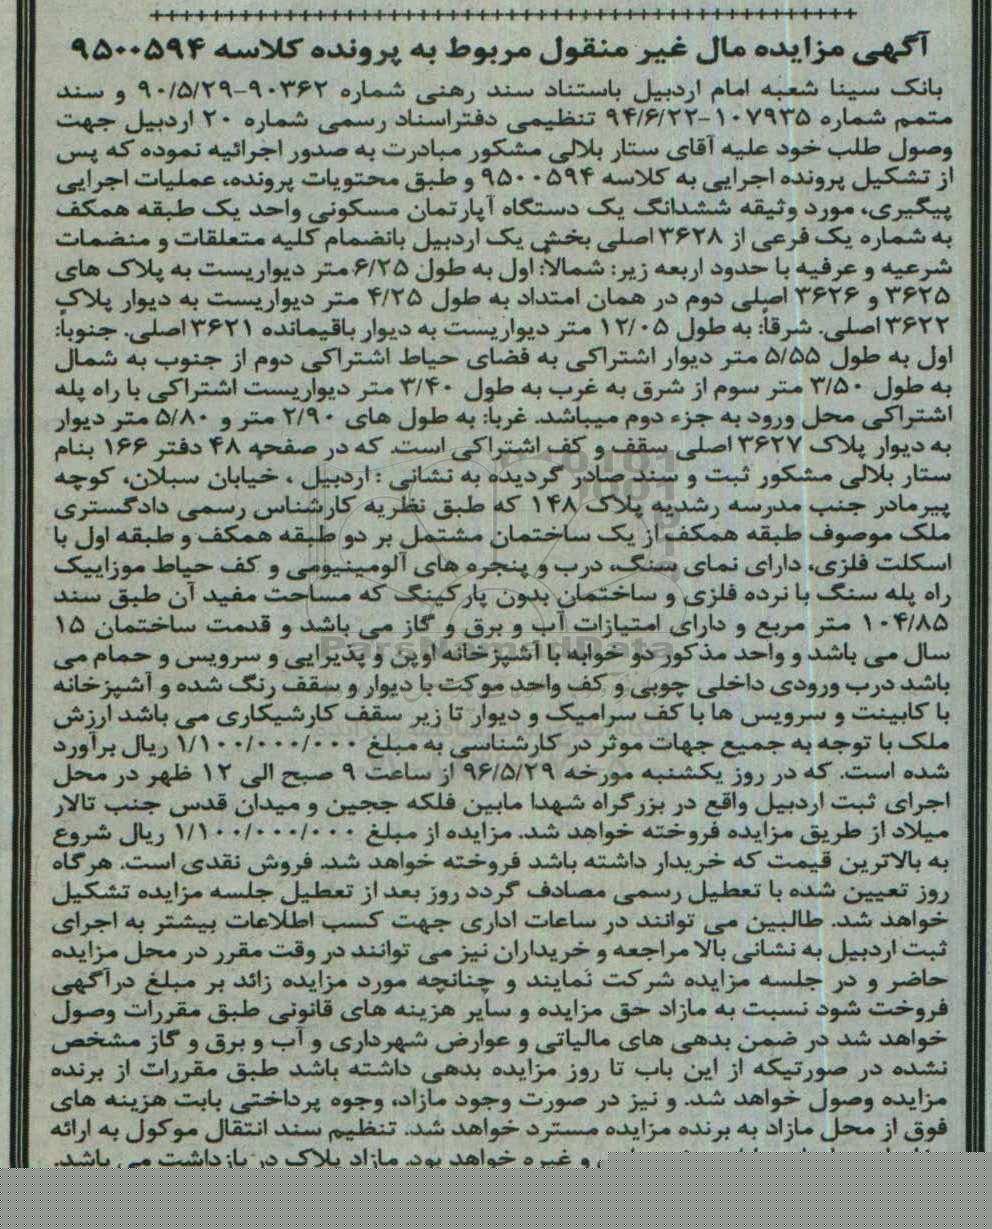 آگهی مزایده مال غیر منقول مربوط به پرونده کلاسه ۹۵۰۰۵۹۴
بانک سینا شعبه امام اردبیل باستناد سند رهنی شماره ۹۰۳۶۲-۹۰/۵/۲۹ و سند
متمم شماره ۱۰۷۹۳۵-۹۴/۶/۲۲ تنظیمی دفتراسناد رسمی شماره ۲۰ اردبیل جهت
وصول طلب خود علیه آقای ستار بلالی مشکور مبادرت به صدور اجرائیه نموده که پس
از تشکیل پرونده اجرایی به کلاسه ۹۵۰۰۵۹۴ و طبق محتویات پرونده، عملیات اجرایی
پیگیری، مورد وثیقه ششدانگ یک دستگاه آپارتمان مسکونی واحد یک طبقه همکف
به شماره یک فرعی از ۳۶۲۸ اصلی بخش یک اردبیل بانضمام کلیه متعلقات و منضمات
شرعیه و عرفیه با حدود اربعه زیر: شمالاً: اول به طول ۶/۲۵ متر دیواریست به پلاک های
۳۶۲۵ و ۳۶۲۶ اصلی دوم در همان امتداد به طول ۴/۲۵ متر دیواریست به دیوار پلاک
۳۶۲۲ اصلی. شرقاً: به طول ۱۲/۰۵ متر دیواریست به دیوار باقیمانده ۳۶۲۱ اصلی. جنوباً:
اول به طول ۵/۵۵ متر دیوار اشتراکی به فضای حیاط اشتراکی دوم از جنوب به شمال
به طول ۳/۵۰ متر سوم از شرق به غرب به طول ۳/۴۰ متر دیواریست اشتراکی با راه پله
اشتراکی محل ورود به جزء دوم میباشد. غربا: به طول های ۲/۹۰ متر و ۵/۸۰ متر دیوار
به دیوار پلاک ۳۶۲۷ اصلی سقف و کف اشتراکی است. که در صفحه ۴۸ دفتر ۱۶۶ بنام
ستار بلالی مشکور ثبت و سند صادر گردیده به نشانی : اردبیل ، خیابان سبلان، کوچه
پیرمادر جنب مدرسه رشدیه پلاک ۱۴۸ که طبق نظریه کارشناس رسمی دادگستری
ملک موصوف طبقه همکف از یک ساختمان مشتمل بر دو طبقه همکف و طبقه اول با
اسکلت فلزی، دارای نمای سنگ، درب و پنجره های آلومینیومی و کف حیاط موزاییک
راه پله سنگ با نرده فلزی و ساختمان بدون پارکینگ که مساحت مفید آن طبق سند
۱۰۴/۸۵ متر مربع و دارای امتیازات آب و برق و گاز می باشد و قدمت ساختمان ۱۵
سال می باشد و واحد مذکور دو خوابه با آشپزخانه اوپن و پذیرایی و سرویس و حمام می
باشد درب ورودی داخلی چوبی و کف واحد موکت با دیوار و سقف رنگ شده و آشپزخانه
با کابینت و سرویس ها با کف سرامیک و دیوار تا زیر سقف کارشیکاری می باشد ارزش
ملک با توجه به جمیع جهات موثر در کارشناسی به مبلغ ۱/۱۰۰/۰۰۰/۰۰۰ ریال برآورد
شده است. که در روز یکشنبه مورخه ۹۶/۵/۲۹ از ساعت ۹ صبح الی ۱۲ ظهر در محل
اجرای ثبت اردبیل واقع در بزرگراه شهدا مابین فلکه ججین و میدان قدس جنب تالار
میلاد از طریق مزایده فروخته خواهد شد. مزایده از مبلغ ۱/۱۰۰/۰۰۰/۰۰۰ ریال شروع
به بالاترین قیمت که خریدار داشته باشد فروخته خواهد شد. فروش نقدی است. هرگاه
روز تعیین شده با تعطیل رسمی مصادف گردد روز بعد از تعطیل جلسه مزایده تشکیل
خواهد شد. طالبین می توانند در ساعات اداری جهت کسب اطلاعات بیشتر به اجرای
ثبت اردبیل به نشانی بالا مراجعه و خریداران نیز می توانند در وقت مقرر در محل مزایده
حاضر و در جلسه مزایده شرکت نمایند و چنانچه مورد مزایده زائد بر مبلغ درآگهی
فروخت شود نسبت به مازاد حق مزایده و سایر هزینه های قانونی طبق مقررات وصول
خواهد شد در ضمن بدهی های مالیاتی و عوارض شهرداری و آب و برق و گاز مشخص
نشده در صورتیکه از این باب تا روز مزایده بدهی داشته باشد طبق مقررات از برنده
مزایده وصول خواهد شد. و نیز در صورت وجود مازاد، وجوه پرداختی بابت هزینه های
فوق از محل مازاد به برنده مزایده مسترد خواهد شد. تنظیم سند انتقال موکول به ارائه
و غیره خواهد بود. مازاد پلاک در بازداشت می باشد.